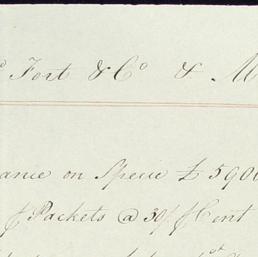 Fort & Co & M
ance on Specie £ 5900
Packets @ 30/ Cent